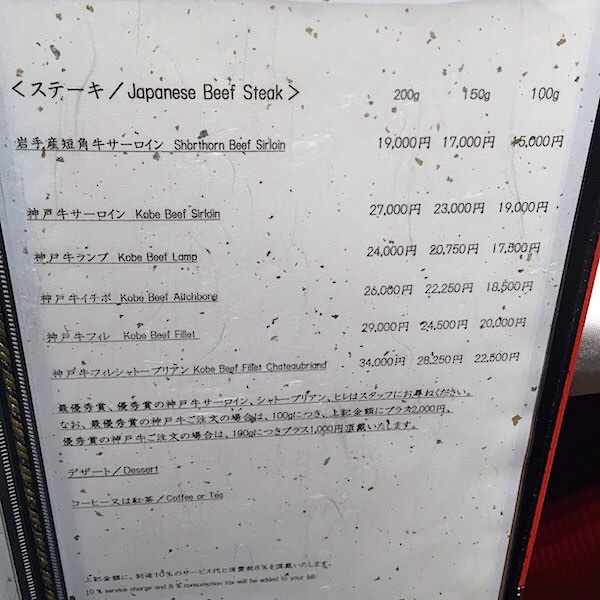 ＜ステーキ／Japanese Beef Steak＞ 200g 150g 100g
岩手産短角牛サーロイン Shorthorn Beef Sirloin 19,000円 17,000円 15,000円
神戸牛サーロイン Kobe Beef Sirloin 27,000円 23,000円 19,000円
神戸牛ランプ Kobe Beef Lamp 24,000円 20,750円 17,500円
神戸牛イチボ Kobe Beef Aitchbone 26,000円 22,250円 18,500円
神戸牛フィレ Kobe Beef Fillet 29,000円 24,500円 20,000円
神戸牛フィレシャトーブリアン Kobe Beef Fillet Chateaubriand 34,000円 28,250円 22,500円
最優秀賞、優秀賞の神戸牛サーロイン、シャトーブリアン、ヒレはスタッフにお尋ねください。
なお、最優秀賞の神戸牛ご注文の場合は、100gにつき、上記金額にプラス2,000円、
優秀賞の神戸牛ご注文の場合は、100gにつきプラス1,000円頂戴いたします。
デザート／Dessert
コーヒー又は紅茶／Coffee or Tea
上記金額に、別途10％のサービス代と消費税8％を頂戴いたします。
10％ service charge and 8％ consumption tax will be added to your bill.